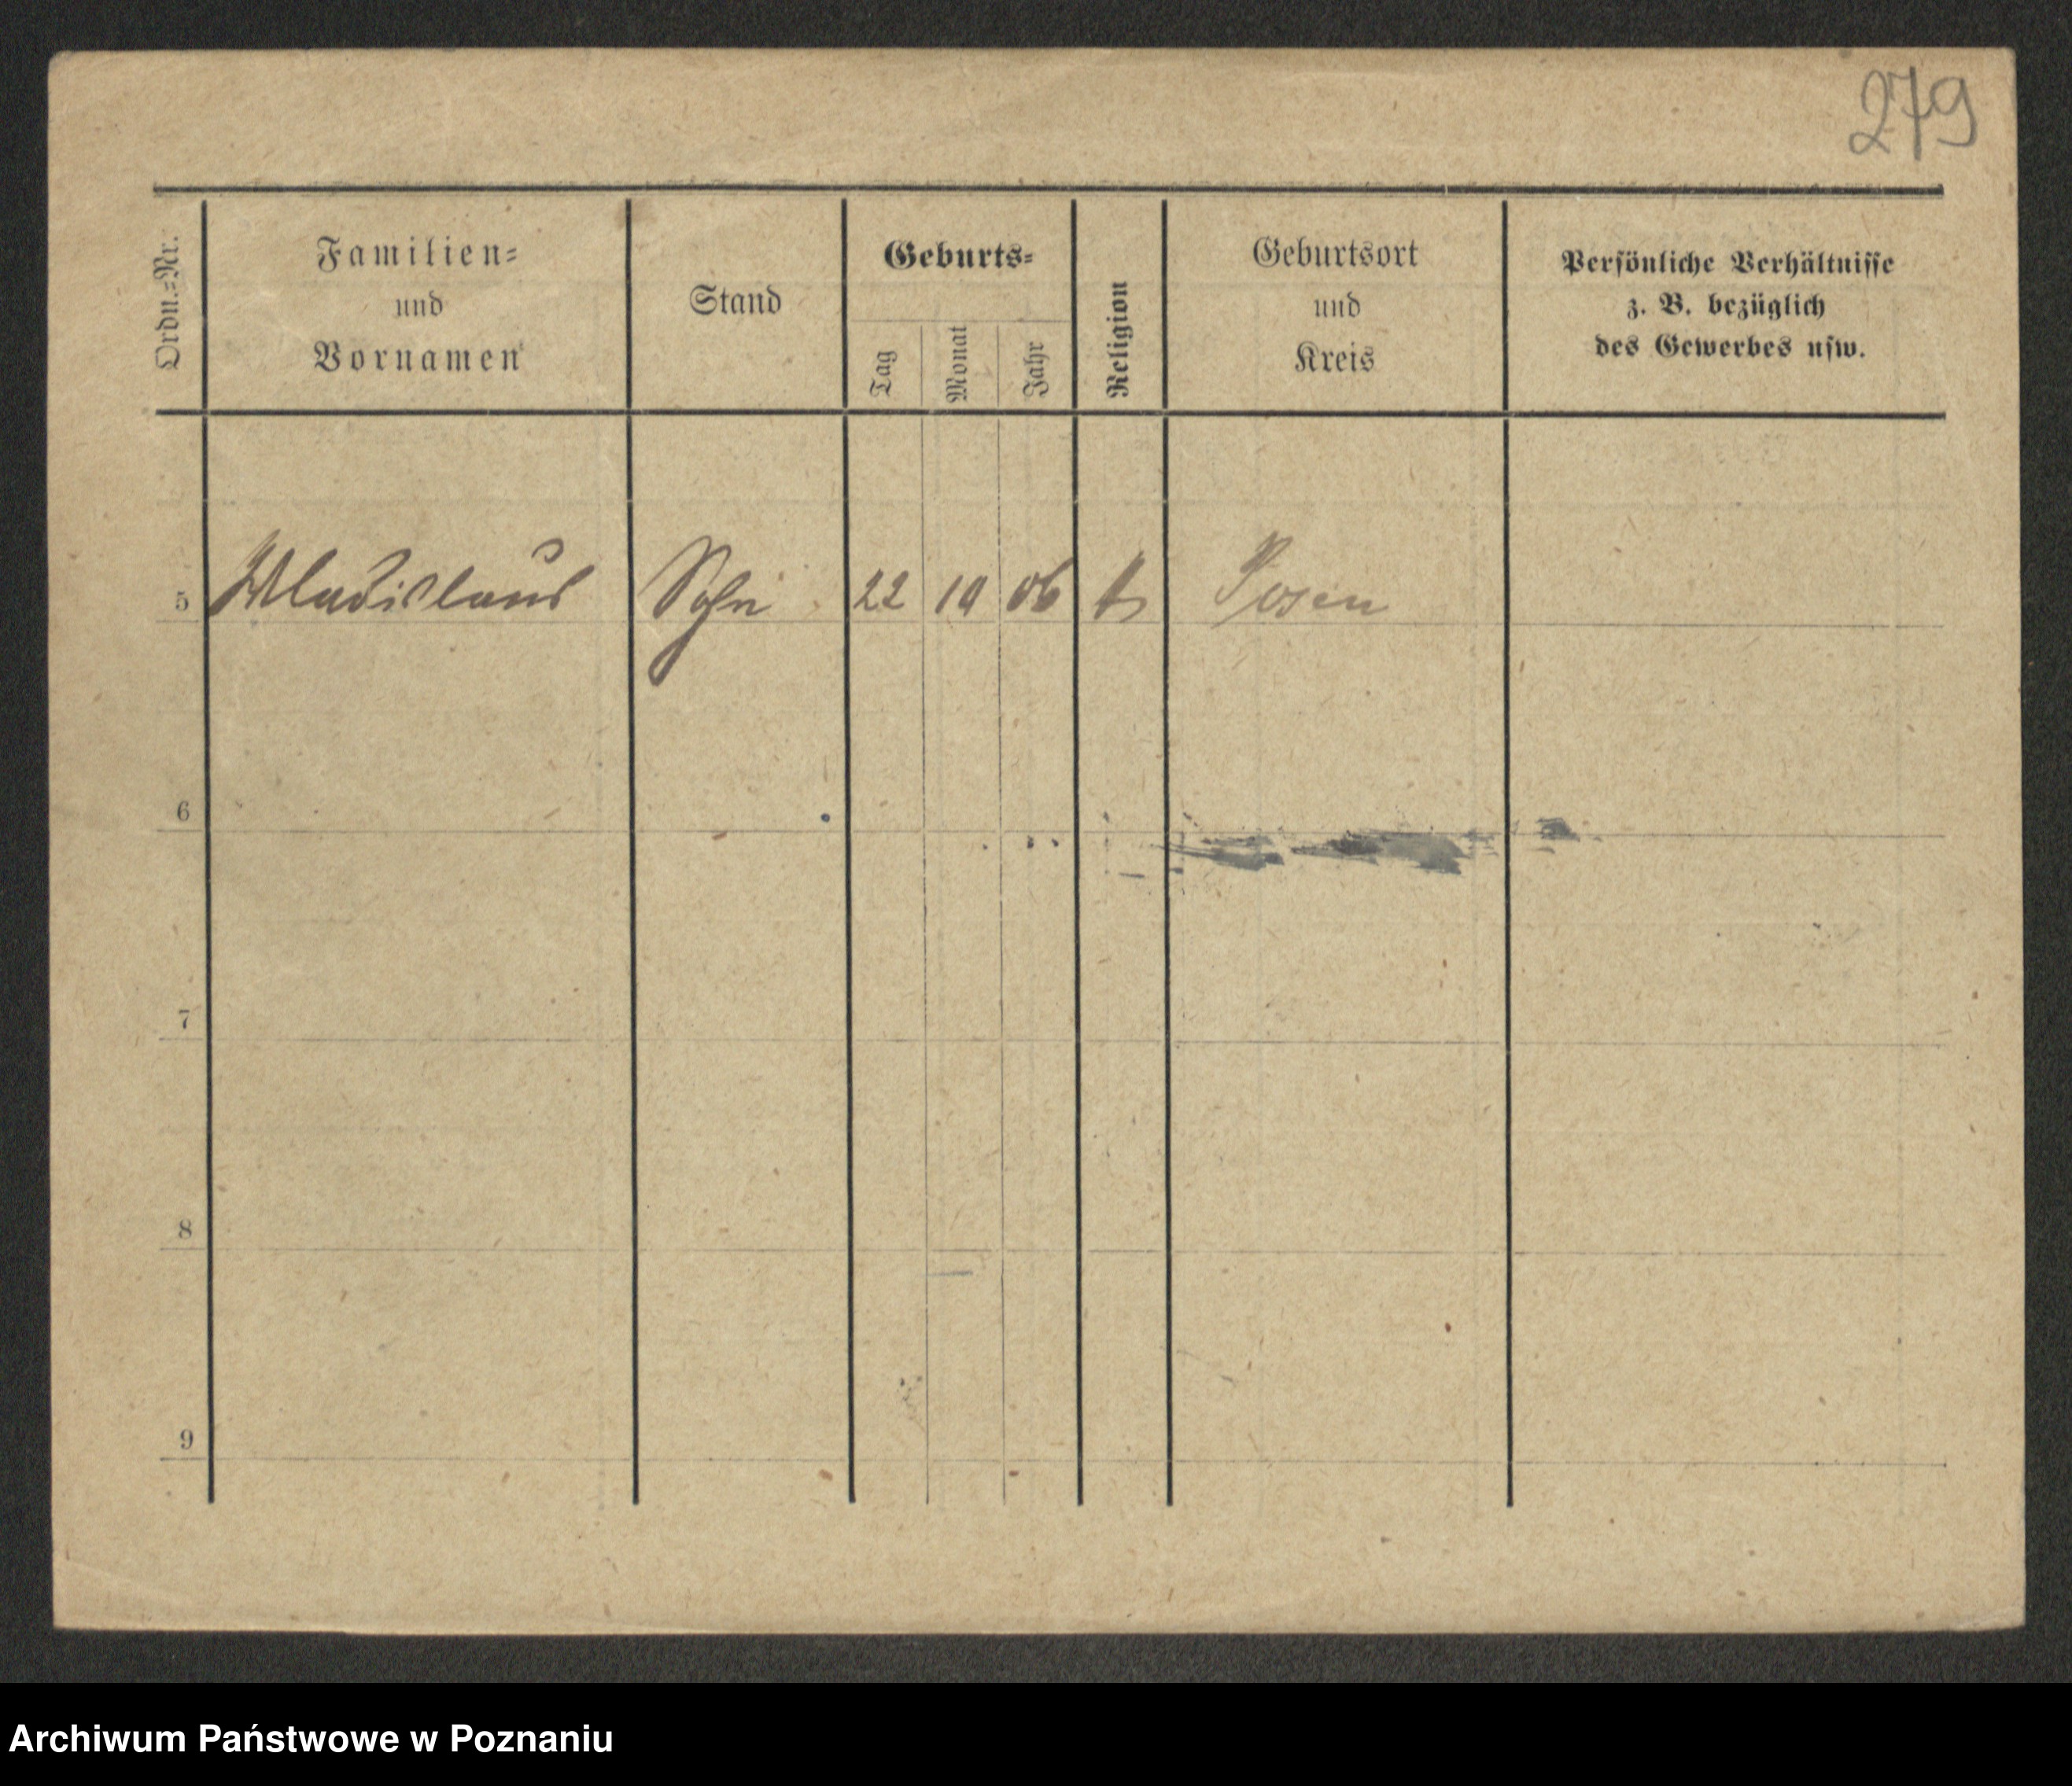 279
Ordn.=Nr.
Familien=
und
Vornamen
Stand
Geburts=
Tag
Monat
Jahr
Religion
Geburtsort
und
Kreis
Persönliche Verhältnisse
z. B. bezüglich
des Gewerbes usw.
5 Wladislaus Sohn 22 10 06 Posen
6
7
8
9
Archiwum Państwowe w Poznaniu